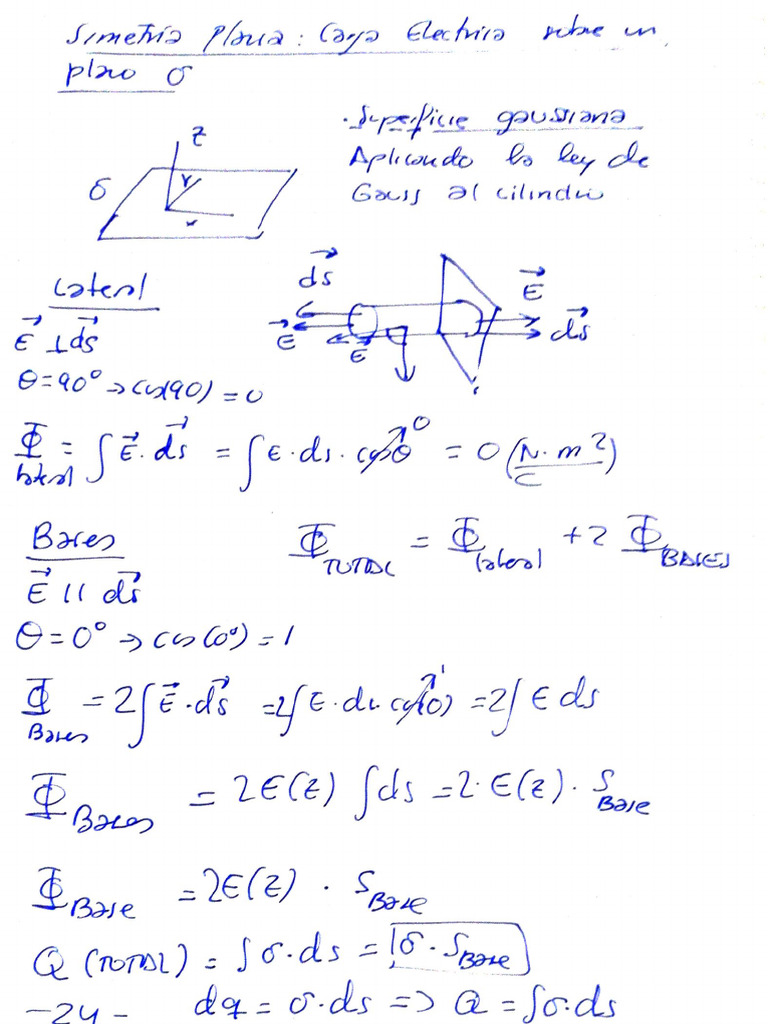 Simetría Plana: Carga Electrica sobre un
plano σ
z
σ
y
x
· Superficie gaussiana
Aplicando la ley de
Gauss al cilindro
Lateral
E⃗ ⊥ ds⃗
θ = 90° → cos(90) = 0
ds⃗
E⃗
E⃗
E⃗
ds⃗
Φ lateral = ∫ E⃗ · ds⃗ = ∫ E · ds · cos θ ↗0 = 0 (N · m²/C)
Bases
E⃗ // ds⃗
Φ TOTAL = Φ lateral + 2 Φ BASES
θ = 0° → cos(0°) = 1
Φ Bases = 2∫ E⃗ · ds⃗ = 2∫ E · ds cos(0) ↗1 = 2∫ E ds
Φ Bases = 2E(z) ∫ ds = 2 · E(z) · S Base
Φ Base = 2E(z) · S Base
Q (TOTAL) = ∫ σ · ds = σ · S Base
-24- dq = σ · ds => Q = ∫ σ · ds